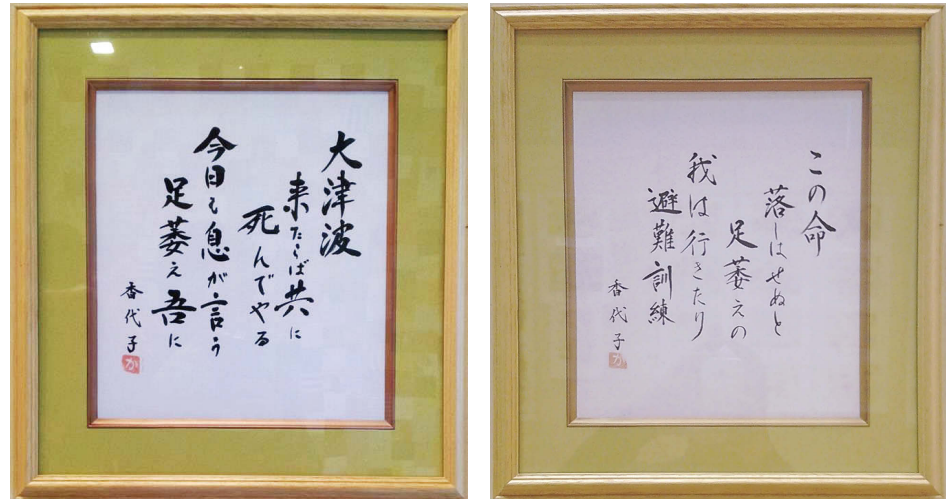 大津波
来たらば共に
死んでやる
今日も息が言う
足萎え吾に
香代子
か
この命
落しはせぬと
足萎えの
我は行きたり
避難訓練
香代子
か